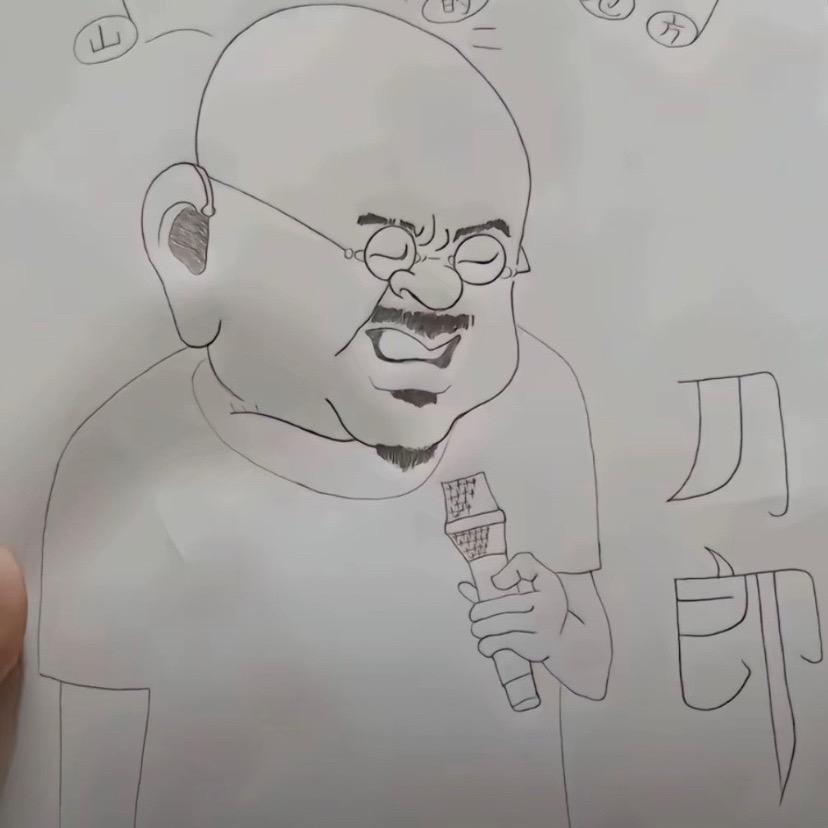 山 的 方
刀郎